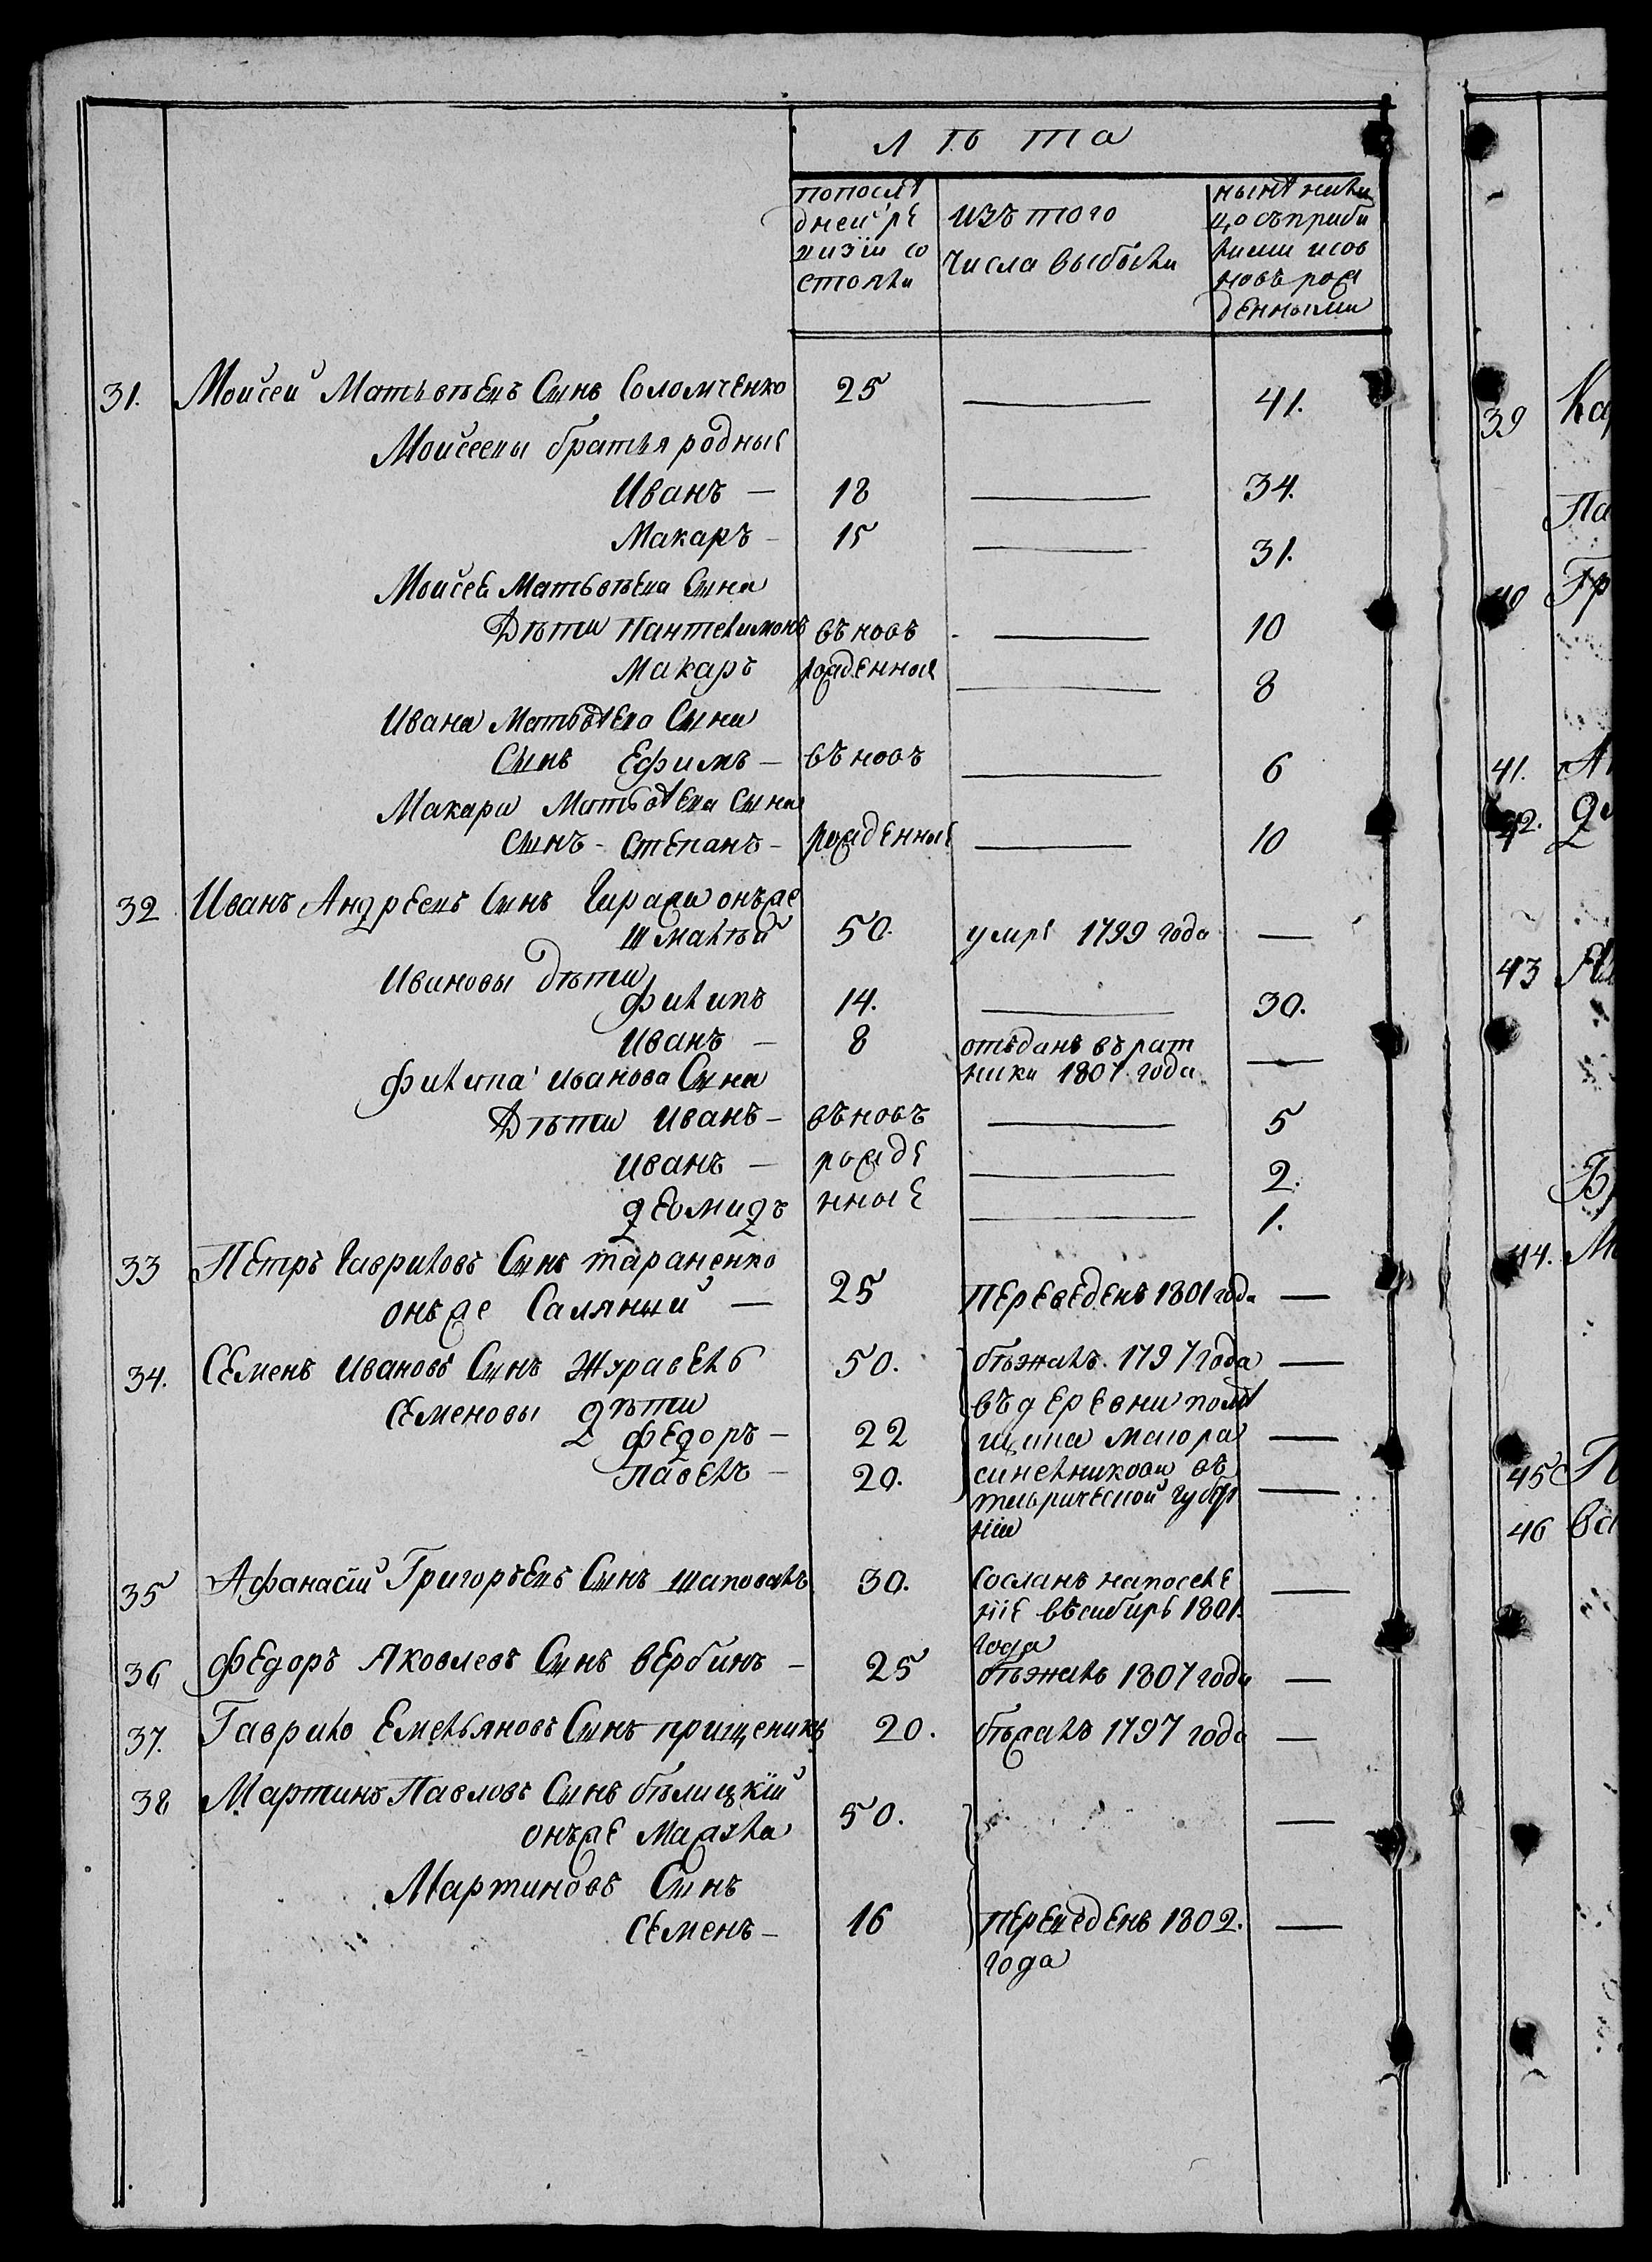 лѣта
попослѣ
дней ре
визіи со
стояли
изъ того
числа выбыли
нынѣ нали
цо съприбы
лыми исов
новъ рож
денными
31. Моисей Матьвѣевъ Сынъ Соломченко 25 — 41.
Моисеевы братья родные
Иванъ — 18 — 34.
Макаръ — 15 — 31.
Моисея Матьвѣева Сына
Дѣти Пантелимонъ въновь — 10
Макаръ рожденные — 8
Ивана Матьвѣева Сына
Сынъ Ефимъ — въновъ — 6
Макара Матьвѣева Сына
Сынъ - Степанъ - рожденные — 10
32 Иванъ Андреевъ Сынъ онъже
Шмалѣй 50. умре 1799 года —
Ивановы дѣти
Филипъ 14. — 30.
Иванъ — 8 отъданъ върат —
ники 1807 года
Филипа Иванова Сына
Дѣти Иванъ — въновъ — 5
Иванъ — рожде — 2.
Деомидъ нные — 1.
33 Петръ Гавриловъ Сынъ тараненко
онъже Саляный — 25 Переведенъ 1801 года —
34. Семенъ Ивановъ Сынъ Журавель 50. бѣжалъ 1797 года —
Семеновы дѣти въдеревни помѣ
Федоръ — 22 щика маіора —
Павелъ — 20. синелникова въ
таврической губер —
ніи
35 Афанасій Григорьевъ Сынъ шаповалъ 30. Сосланъ напоселе —
ніе въсибирь 1801.
года
36 Федоръ Яковлевъ Сынъ вербинъ — 25 бѣжалъ 1807 года —
37. Гаврило Емельяновъ Сынъ прищепинъ 20. бѣжалъ 1797 года —
38 Мартинъ Павловъ Сынъ бѣлицкій
онъже Мажла 50. —
Мартиновъ Сынъ
Семенъ — 16 Переведенъ 1802. —
года
39 Ка
Па
40 Гр
41. А
42. Д
43
Б
44. М
45 П
46 ва